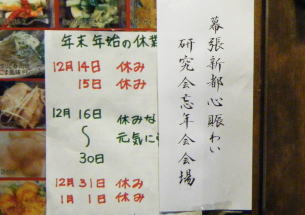 年末年始の休業
12月14日 休み
15日 休み
12月16日 休みな
〜 元気に
30日
12月31日 休み
1月1日 休み
幕張新都心賑わい
研究会忘年会会場